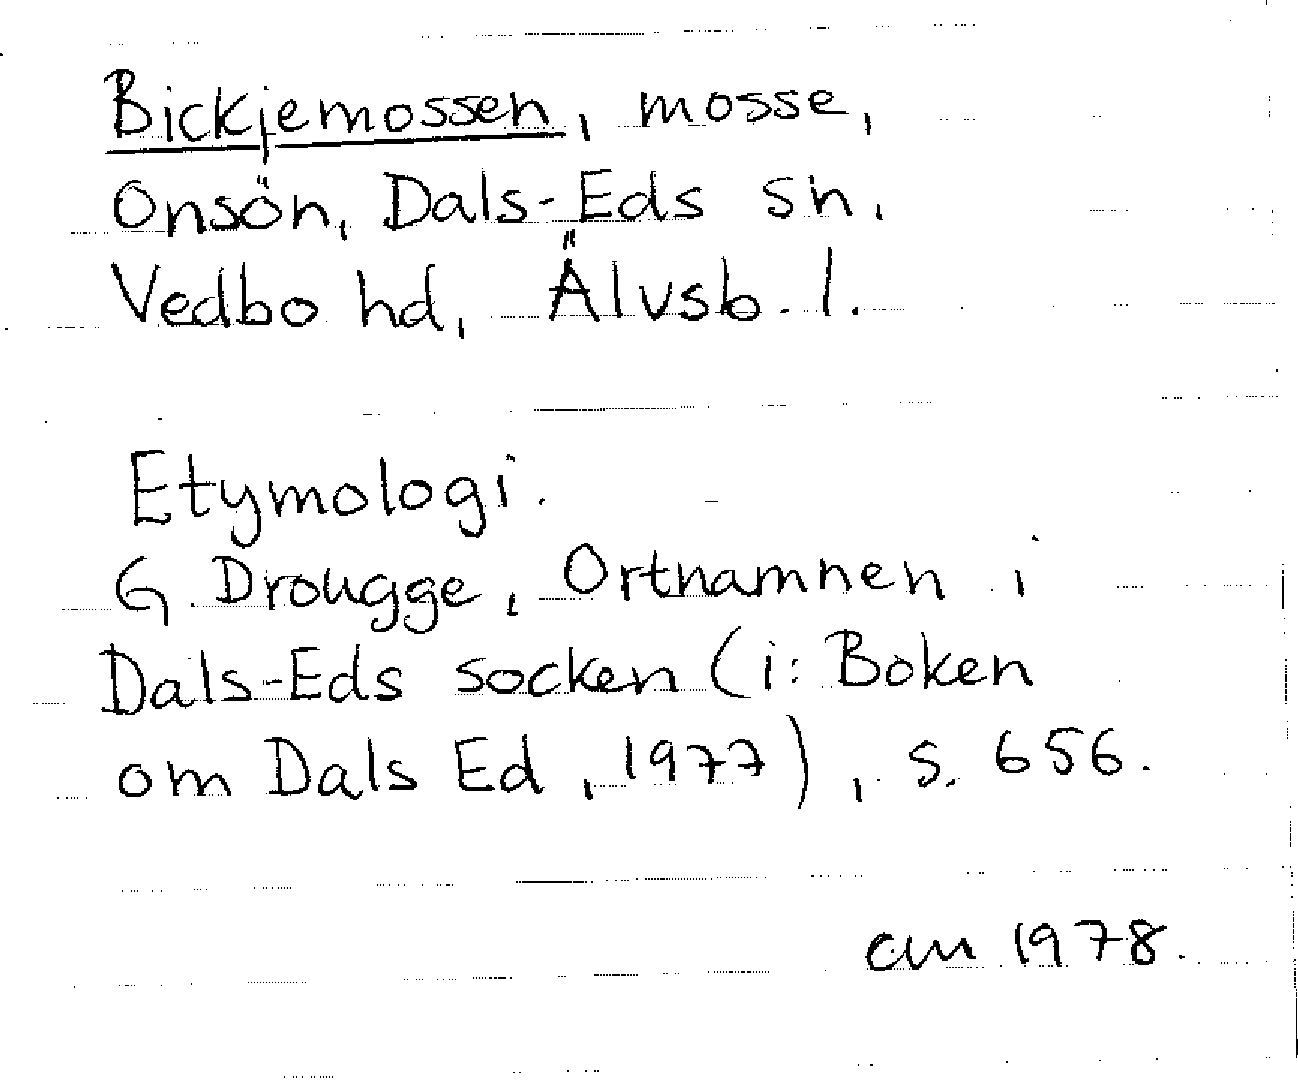 Bickjemossen, mosse,
Onsön, Dals-Eds sn,
Vedbo hd, Älvsb. l.
Etymologi.
G. Drougge, Ortnamnen i
Dals-Eds socken (i: Boken
om Dals Ed, 1977), s. 656.
cm 1978.